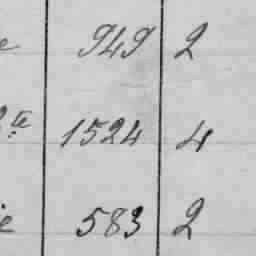 e 949 2
a 1524 4
ie 583 2